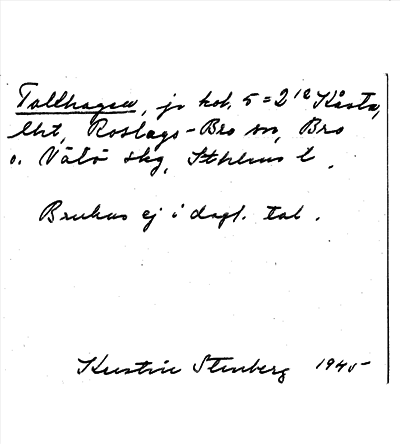 Tallhagen, jr kol. 5 = 2 1/2 Kåsta,
lht, Roslags-Bro sn, Bro
o. Vätö skg, Sthlms l.
Brukas ej i dagl. tal.
Kerstin Stenberg 1945